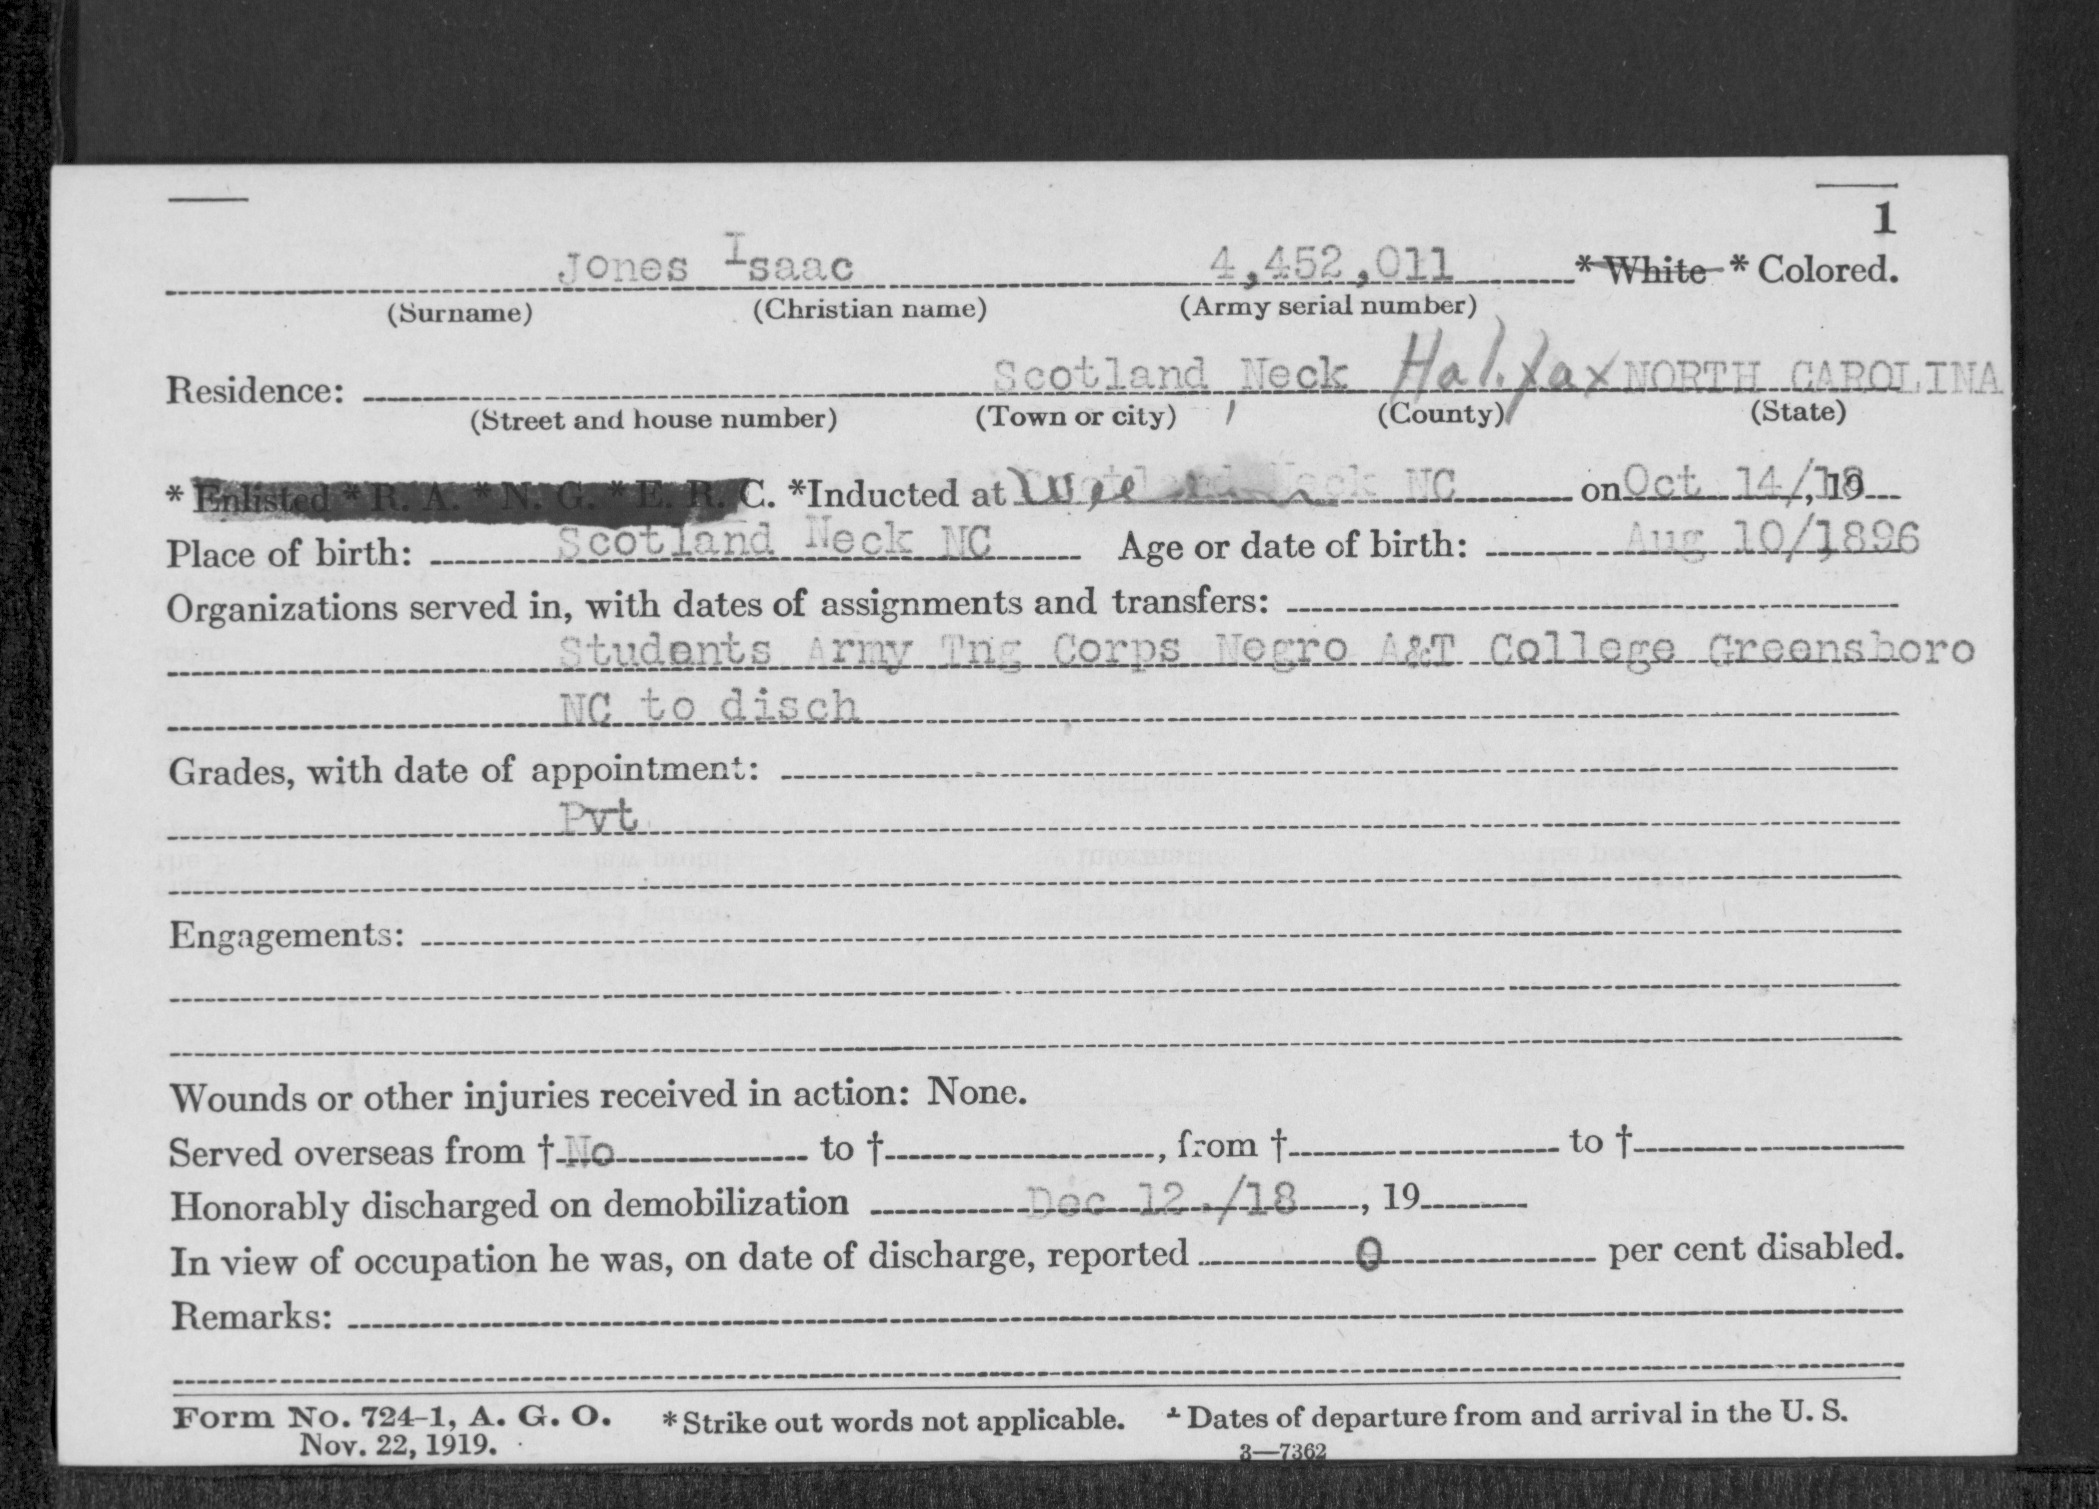 1
Jones Isaac 4,452,011 * White * Colored.
(Surname) (Christian name) (Army serial number)
Residence: Scotland Neck Halifax NORTH CAROLINA
(Street and house number) (Town or city) (County) (State)
* Enlisted * R. A. * N. G. * E. R. C. *Inducted at NC on Oct 14/18, 19
Place of birth: Scotland Neck NC Age or date of birth: Aug 10/1896
Organizations served in, with dates of assignments and transfers:
Students Army Tng Corps Negro A&T College Greensboro
NC to disch
Grades, with date of appointment:
Pvt
Engagements:
Wounds or other injuries received in action: None.
Served overseas from † No to † , from † to †
Honorably discharged on demobilization Dec 12./18 , 19
In view of occupation he was, on date of discharge, reported 0 per cent disabled.
Remarks:
Form No. 724-1, A. G. O. * Strike out words not applicable. † Dates of departure from and arrival in the U. S.
Nov. 22, 1919. 3—7362